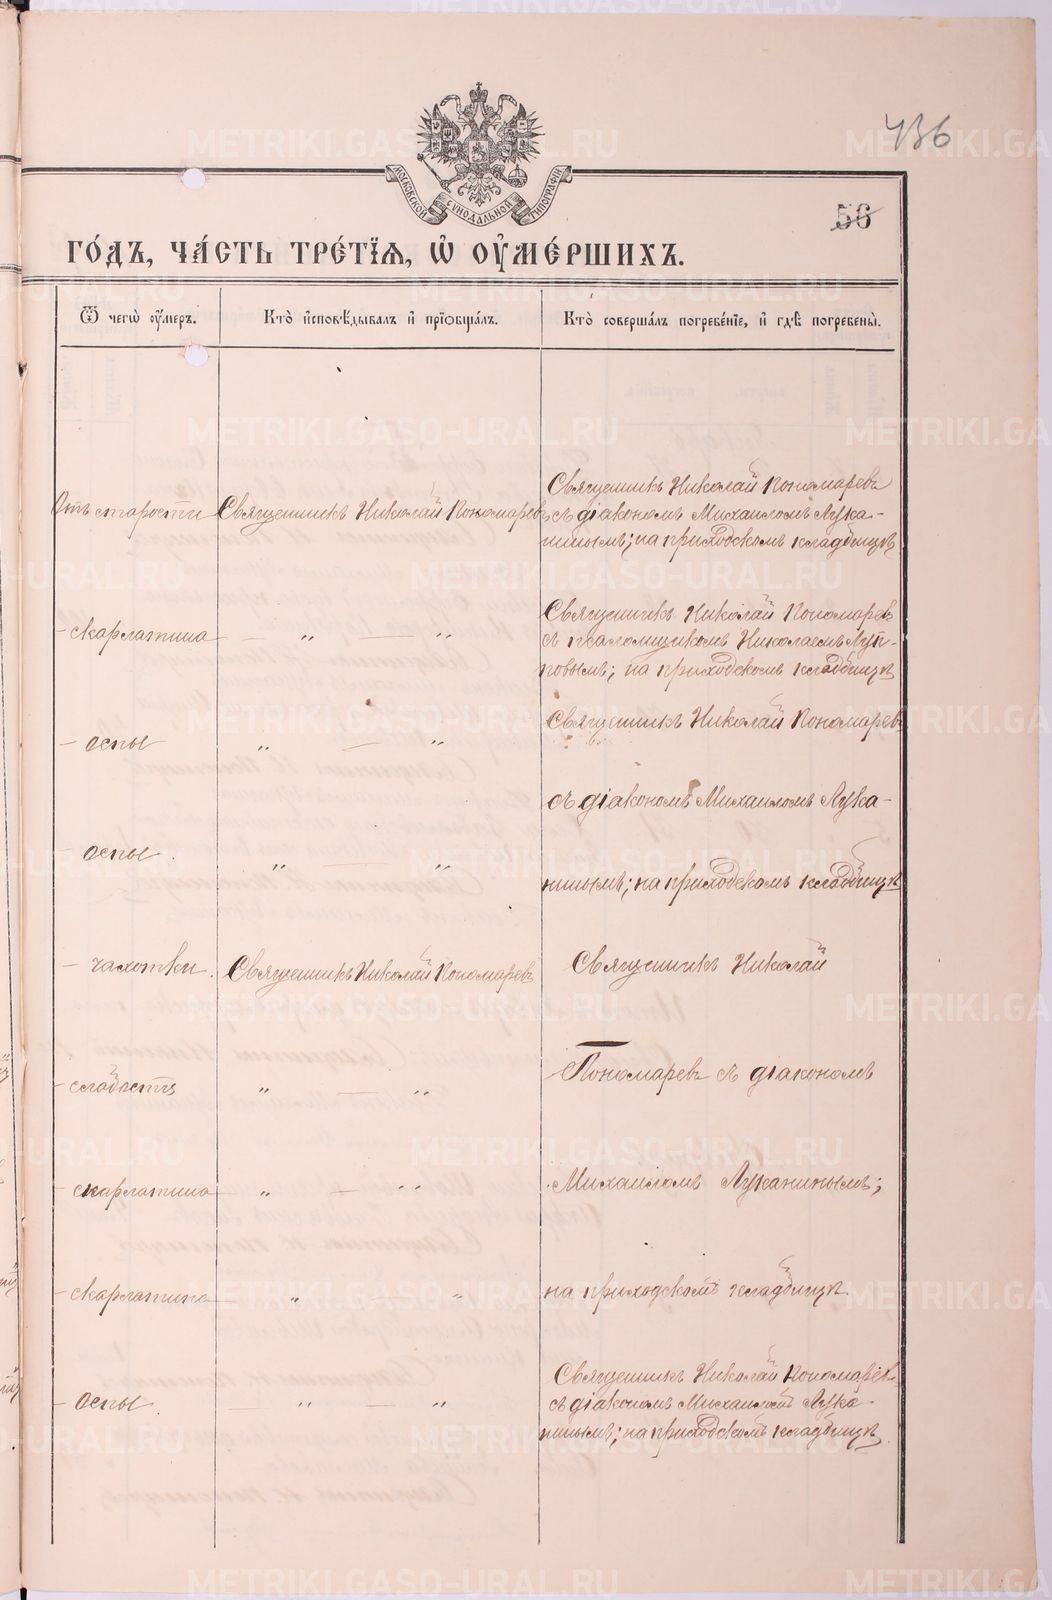 436
МОСКОВСКОЙ СѴНОДАЛЬНОЙ ТИПОГРАФІИ
56
ГО́ДЪ, ЧА́СТЬ ТРЕ́ТІѦ, Ѡ҆ ОУ҆МЕ́РШИХЪ.
Ѿ чегѡ̀ оу҆́меръ.
Кто̀ и҆сповѣ́дывалъ и҆ прїѻбща́лъ.
Кто̀ соверша́лъ погребе́нїе, и҆ гдѣ̀ погребены̀.
Отъ старости
Священникъ Николай Пономаревъ
Священникъ Николай Пономаревъ
съ діакономъ Михаиломъ Лука-
нинымъ; на приходскомъ кладбищѣ
– скарлатина
— „ — „
Священникъ Николай Пономаревъ
съ псаломщикомъ Николаемъ Луп-
повымъ; на приходскомъ кладбищѣ
– оспы
„ — „
Священникъ Николай Пономаревъ
съ діакономъ Михаиломъ Лука-
оспы.
„ — „
нинымъ; на приходскомъ кладбищѣ
– чахотки.
Священникъ Николай Пономаревъ
Священникъ Николай
– слабость
„ — „
Пономаревъ съ діакономъ
– скарлатина
„ — „
Михаиломъ Луканинымъ;
– скарлатина
— „ — „
на приходскомъ кладбищѣ.
– оспы.
— „ — „
Священникъ Николай Пономаревъ
съ діакономъ Михаиломъ Лука-
нинымъ; на приходскомъ кладбищѣ
METRIKI.GASO-URAL.RU